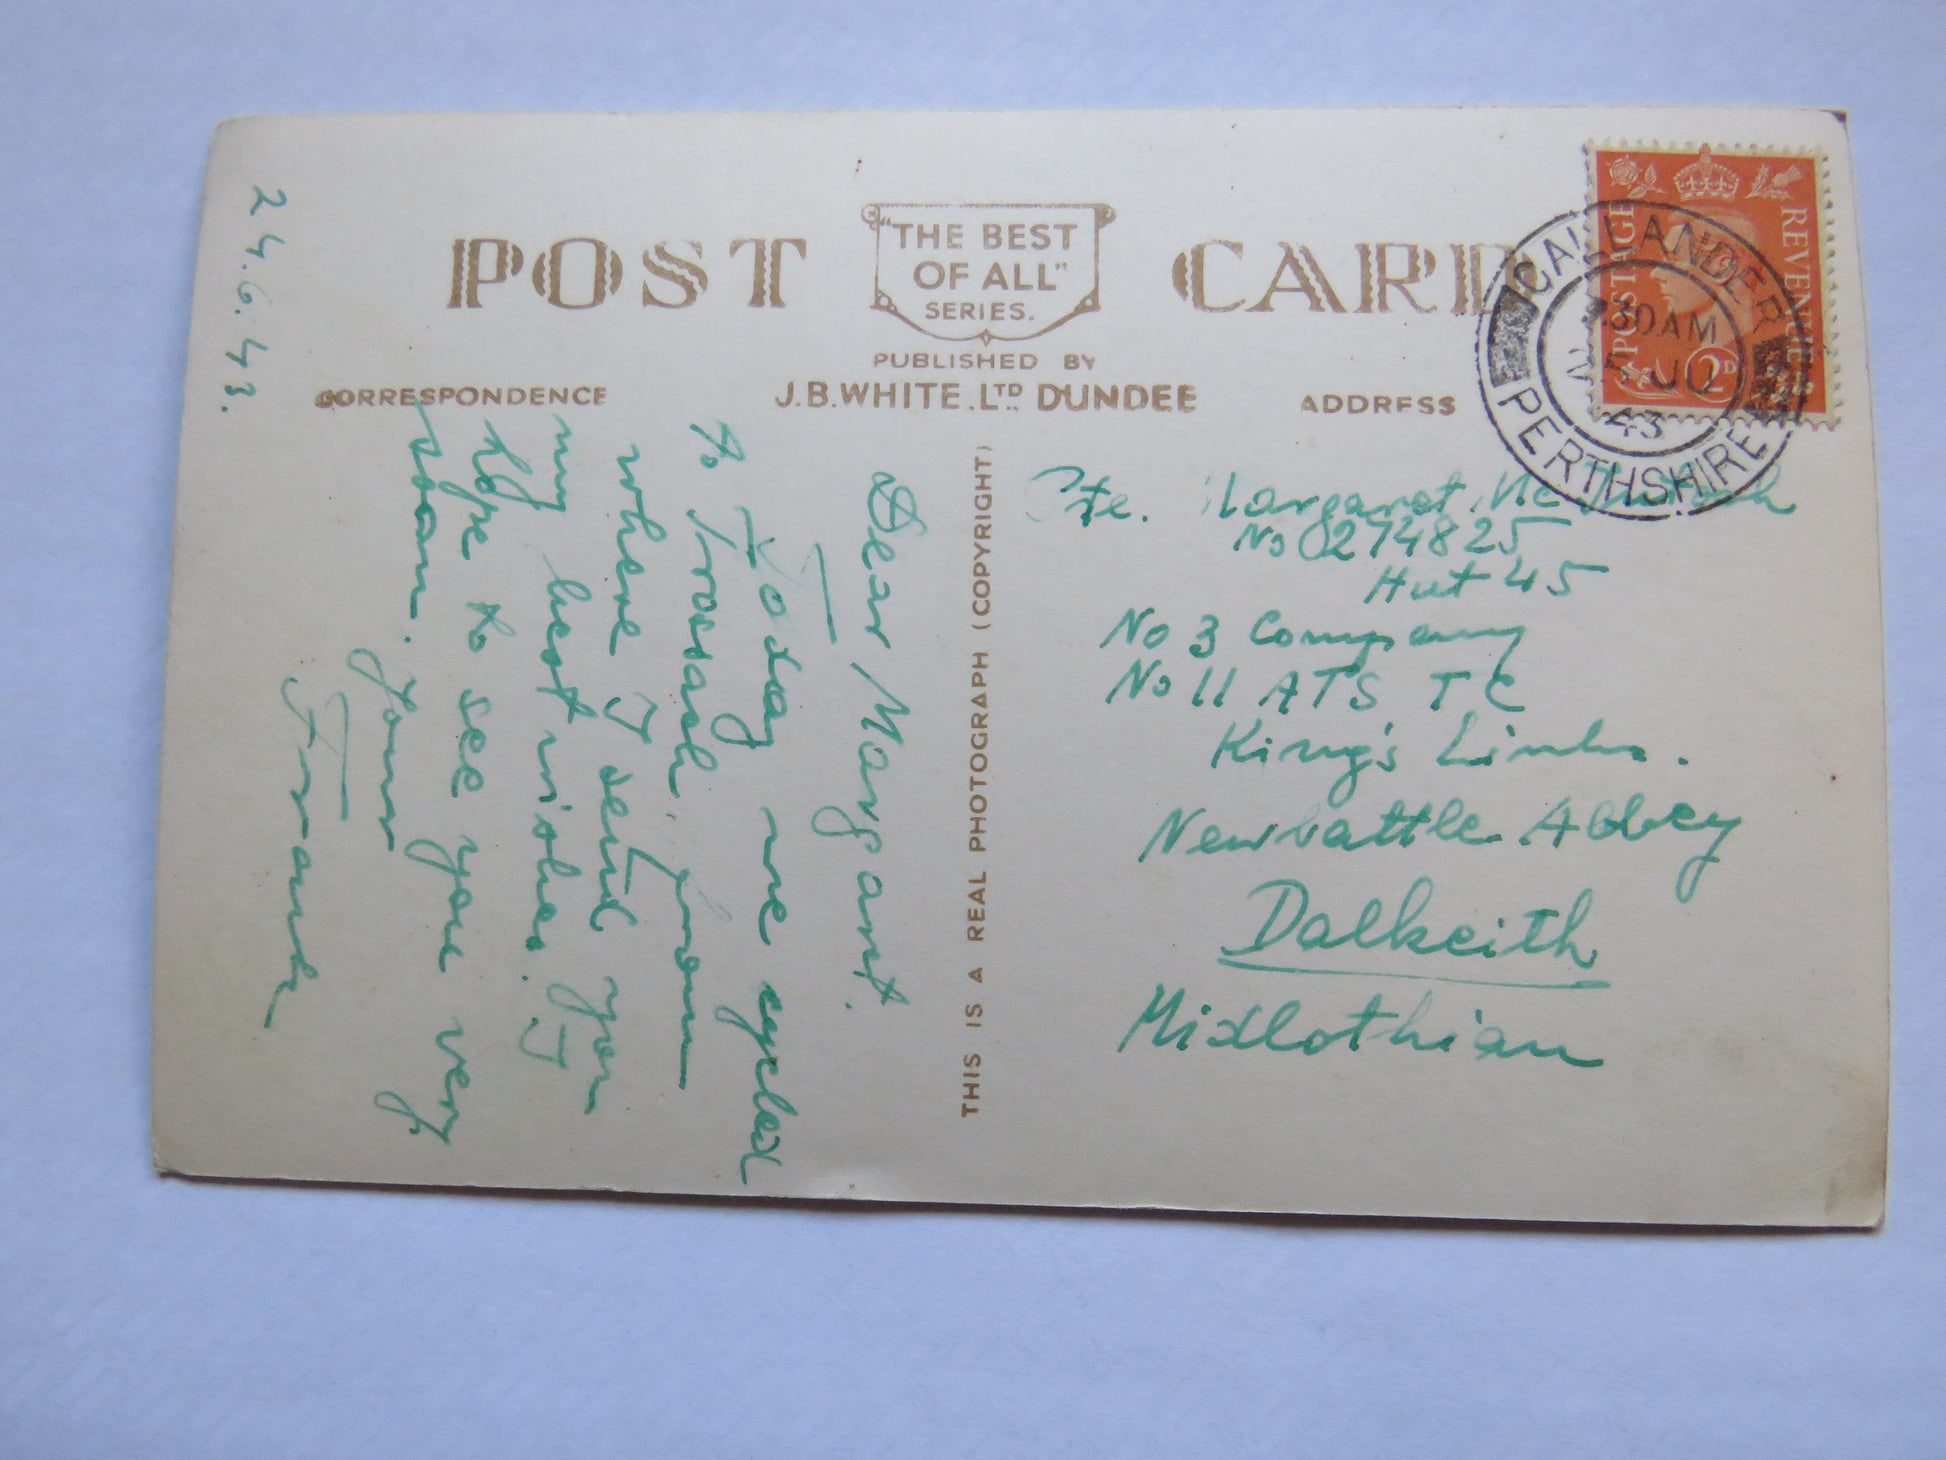 POST CARD
"THE BEST
OF ALL"
SERIES.
PUBLISHED BY
J.B. WHITE. LTD DUNDEE
CORRESPONDENCE
ADDRESS
THIS IS A REAL PHOTOGRAPH (COPYRIGHT)
POSTAGE REVENUE
2D
CALLANDER
30 AM
43
PERTHSHIRE
24.6.43.
Dear Margaret.
Today we cycled
to Trossach, from
where I send you
my best wishes. I
hope to see you very
soon.
Your
Pte. Margaret
No 274825
Hut 45
No 3 Company
No 11 ATS TC
King's
Newbattle Abbey
Dalkeith
Midlothian